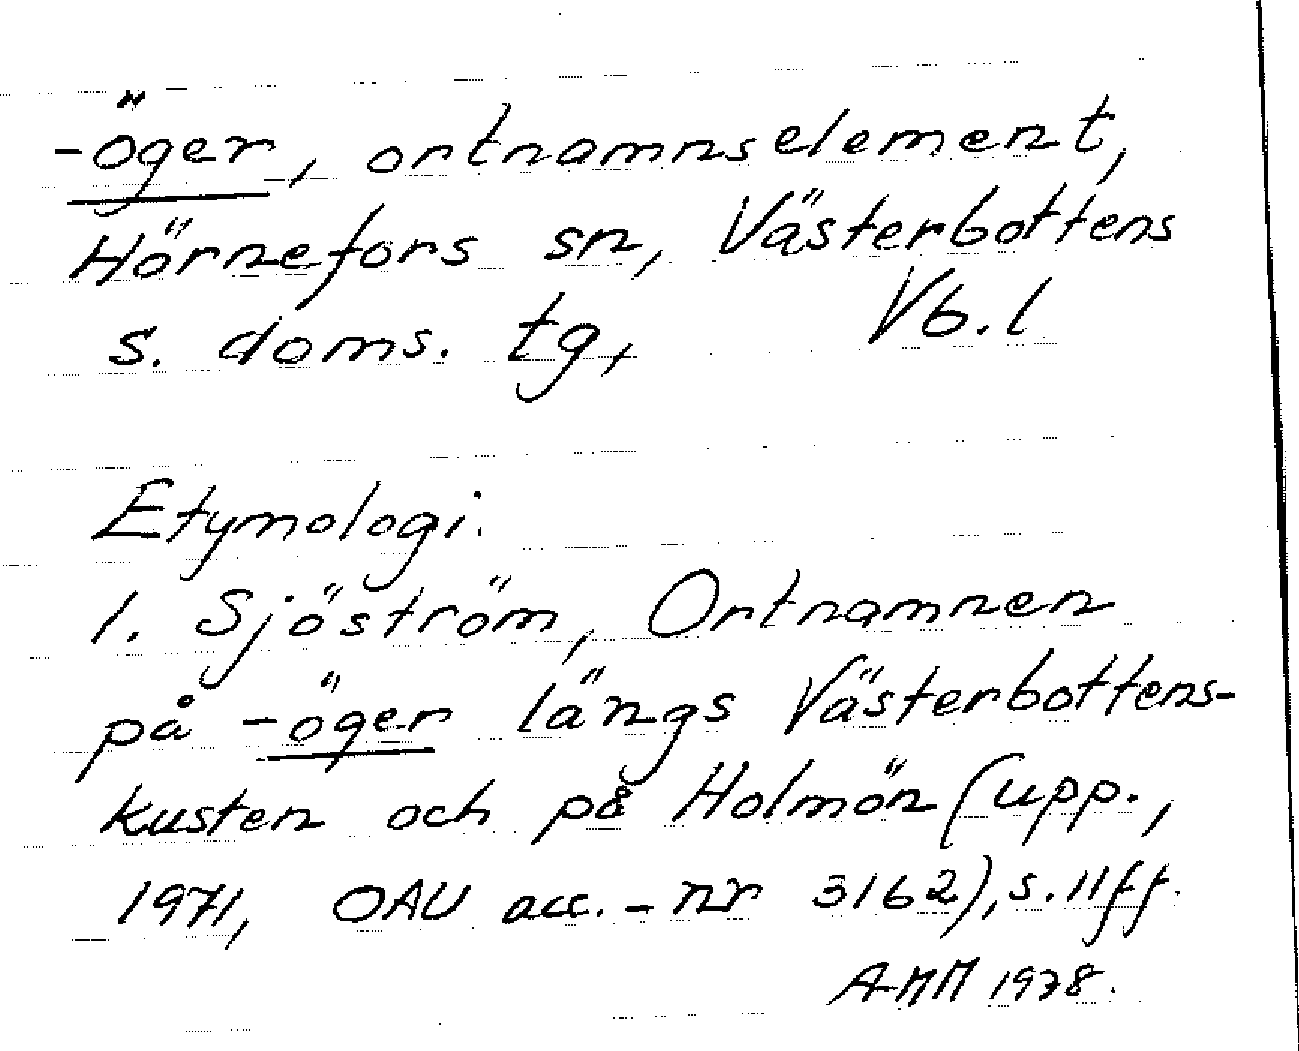 -öger, ortnamnselement,
Hörnefors sn, Västerbottens
s. doms. tg, Vb.l
Etymologi.
1. Sjöström, Ortnamnen
på -öger längs Västerbottens-
kusten och på Holmön (upp.,
1971, OAU acc.-nr 3162), s. 11ff.
AMM 1978.